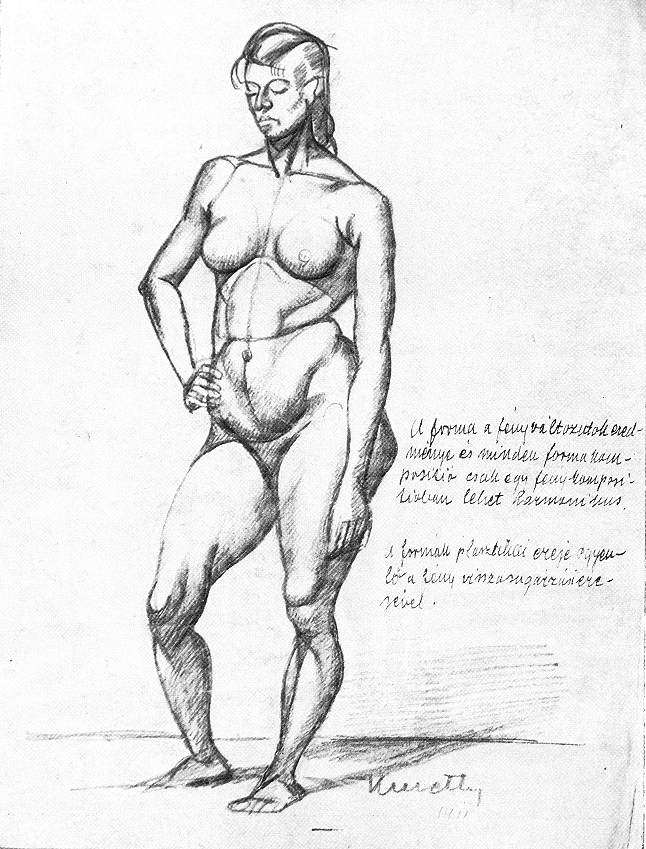 A forma a fényváltozatok ered-
ménye és minden formakom-
pozíció csak egy fénykompozi-
tióban lehet harmonikus.
A formák plasztikai ereje egyen-
lő a fény visszasugárzó ere-
jével.